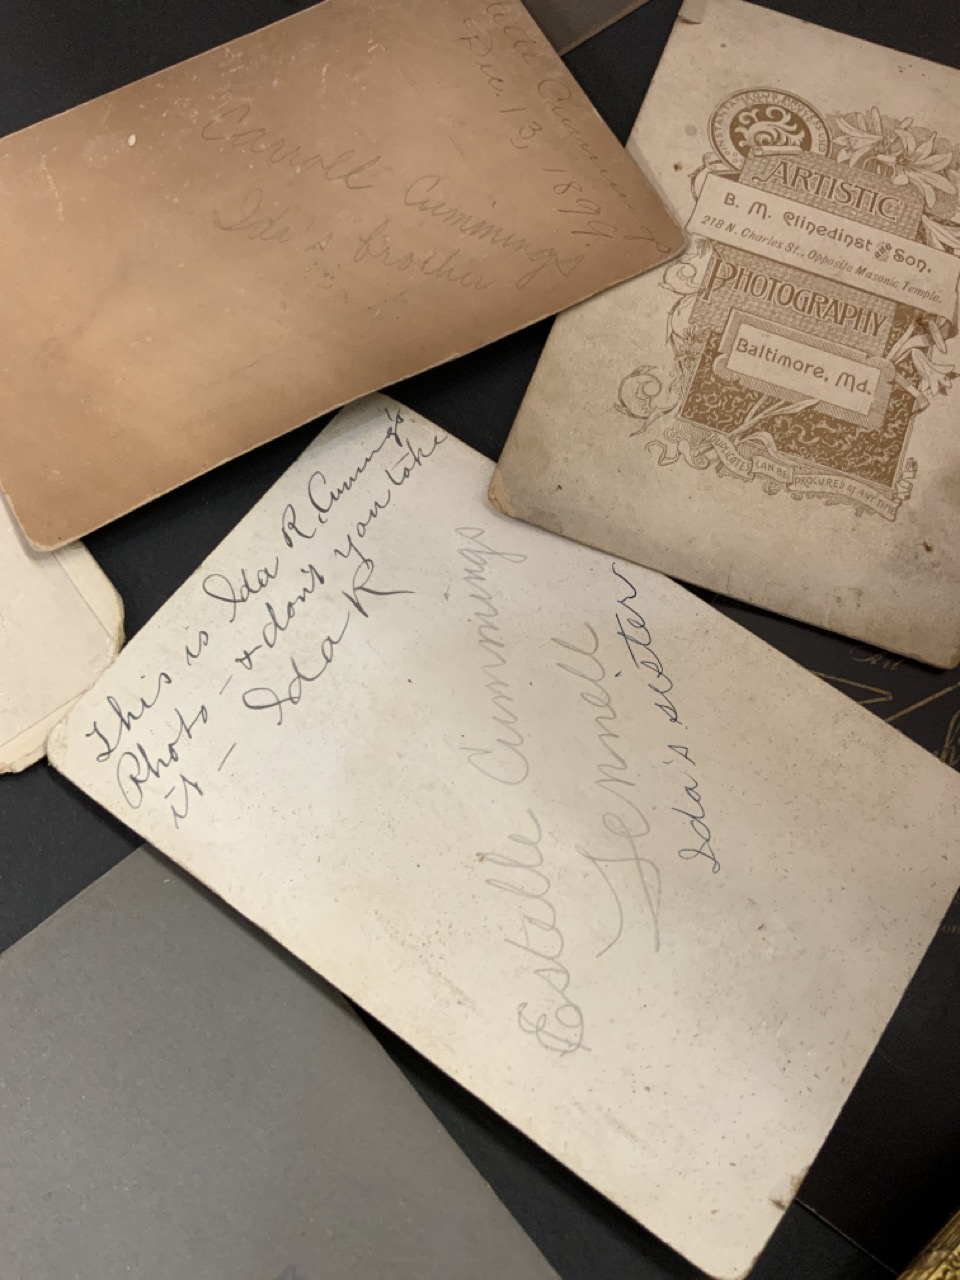 Will Cummings
Dec. 13, 1899.
Carroll Cummings
Ida's brother
ARTISTIC
B. M. Clinedinst AND Son.
218 N. Charles St., Opposite Masonic Temple.
PHOTOGRAPHY
Baltimore, Md.
DUPLICATES CAN BE PROCURED AT ANY TIME
This is Ida R. Cumming's
Photo - + don't you take
it - Ida R
Estelle Cummings
Jennell
Ida's sister
Art